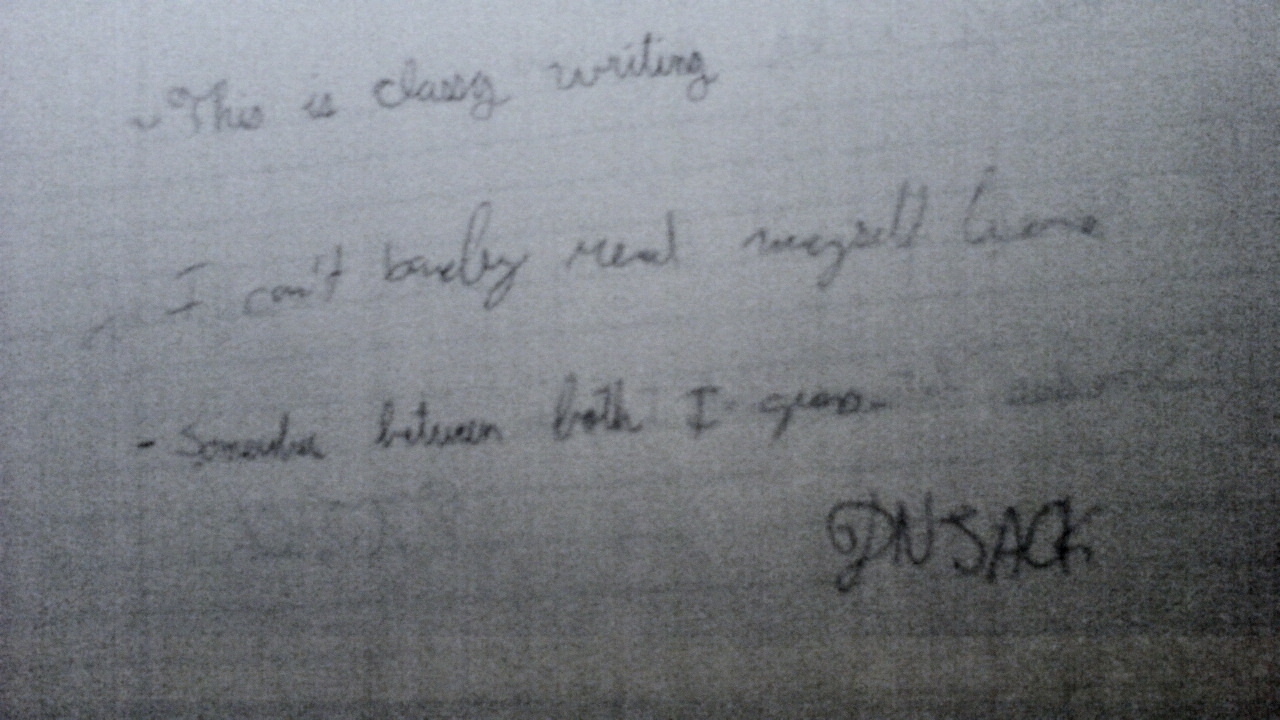 ~ This is classy writing
I can't barely read myself here
- Somewhere between both I guess.
DNSACK